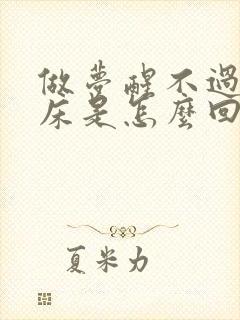 做夢醒不過
床是怎麼回
夏米力